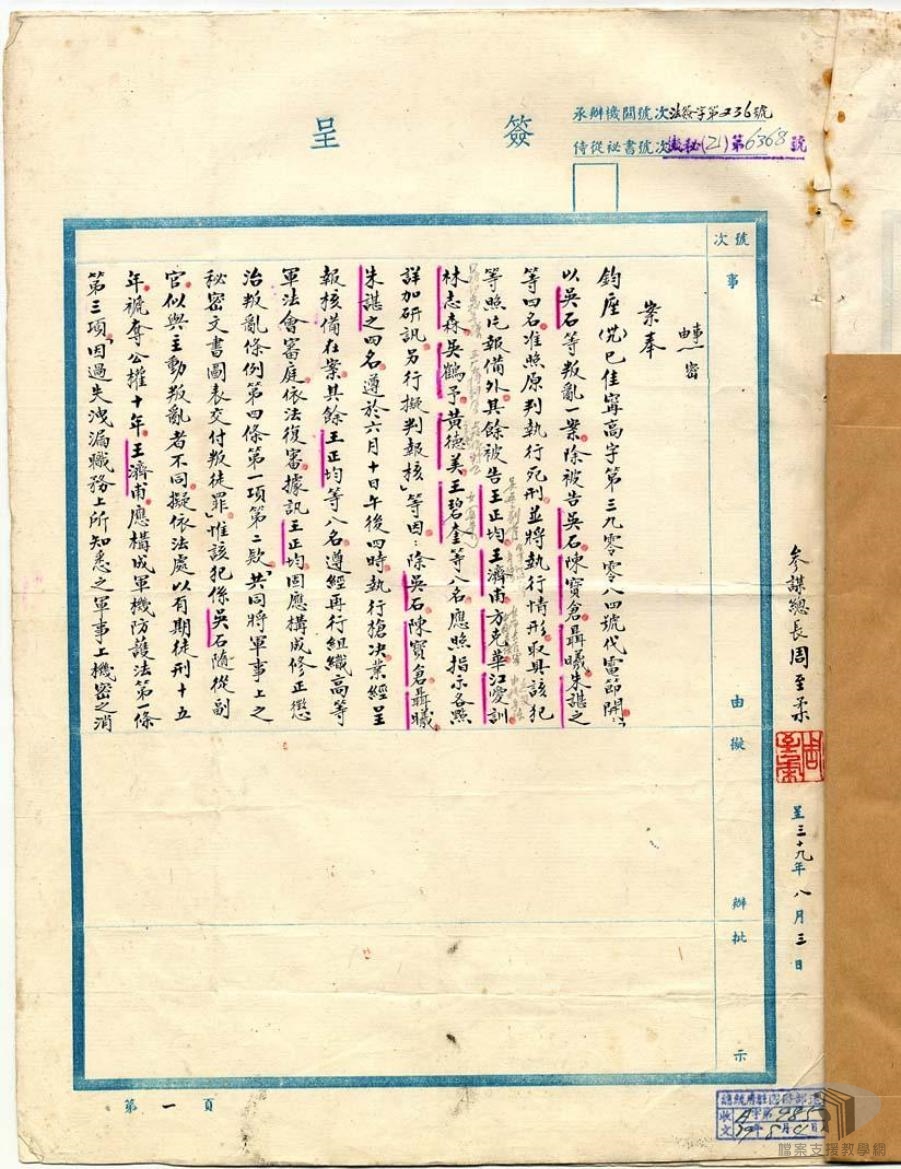 簽呈
承辦機關號次法簽字第236號
侍從祕書號次機秘(乙)第6368號
號次
事由
擬辦
批示
參謀總長周至柔
呈三十九年八月三日
案奉
鈞座(卅九)巳佳寗高字第三九零零八四號代電節開：「
以吳石等叛亂一案除被告吳石陳寶倉聶曦朱諶之
等四名准照原判執行死刑並將執行情形取具該犯
等照片報備外其餘被告王正均王濟甫方克華江愛訓
林志森吳鶴予黃德美王碧奎等八名應照指示各點
詳加研訊另行擬判報核」等因：除吳石陳寶倉聶曦
朱諶之四名遵於六月十日午後四時執行槍决業經呈
報核備在案其餘王正均等八名遵經再行組織高等
軍法會審庭依法復審據訊王正均固應構成修正懲
治叛亂條例第四條第一項第二款「共同將軍事上之
秘密文書圖表交付叛徒罪」惟該犯係吳石隨從副
官似與主動叛亂者不同擬依法處以有期徒刑十五
年褫奪公權十年王濟甫應構成軍機防護法第一條
第三項「因過失洩漏職務上所知悉之軍事上機密之消
第一頁
檔案支援教學網